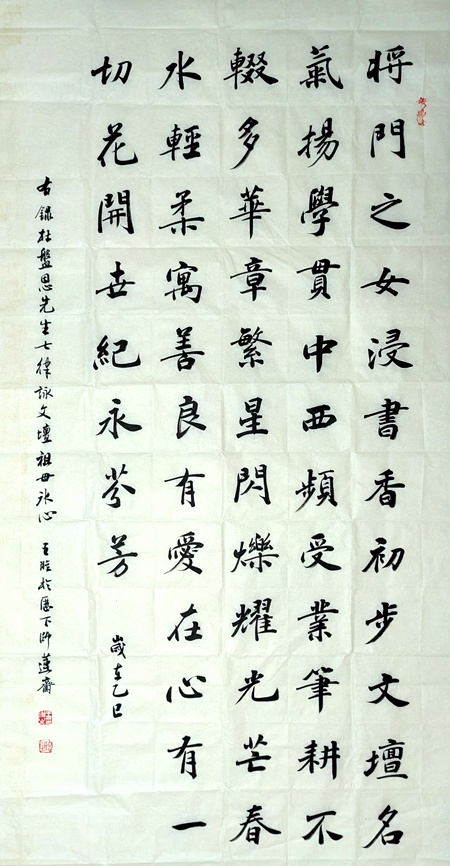 將門之女浸書香初步文壇名
氣揚學貫中西頻受業筆耕不
輟多華章繁星閃爍耀光芒春
水輕柔寓善良有愛在心有一
切花開世紀永芬芳
歲在乙巳
右錄杜盤思先生七律詠文壇祖母冰心
王胜於歷下師蓮齋